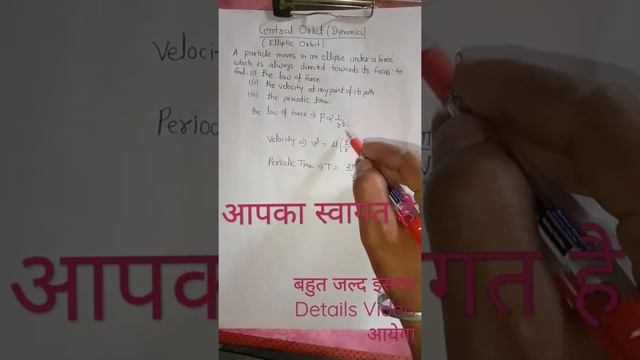 Central Orbit (Dynamics)
(Elliptic Orbit)
A particle moves in an ellipse under a force
which is always directed towards its focus: to
find. (i) the law of force
(ii) the velocity at any point of its path
(iii) the periodic time
the law of force ⇒ P ∝ 1/r²
Velocity ⇒ v² = μ(2/r
Periodic Time ⇒ T = 2π
आपका स्वागत है
बहुत जल्द इसका
Details Video
आयेगा
Veloci
Perio
आप
गत है